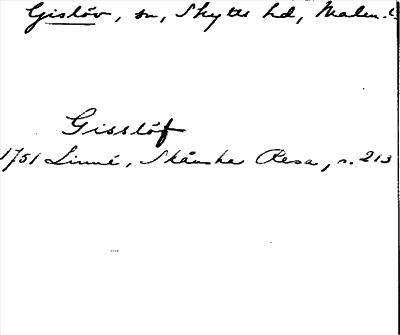 Gislöv, sn, Skytts hd, Malm. l.
Gisslöf
1751 Linné, Skånska Resa, s. 213